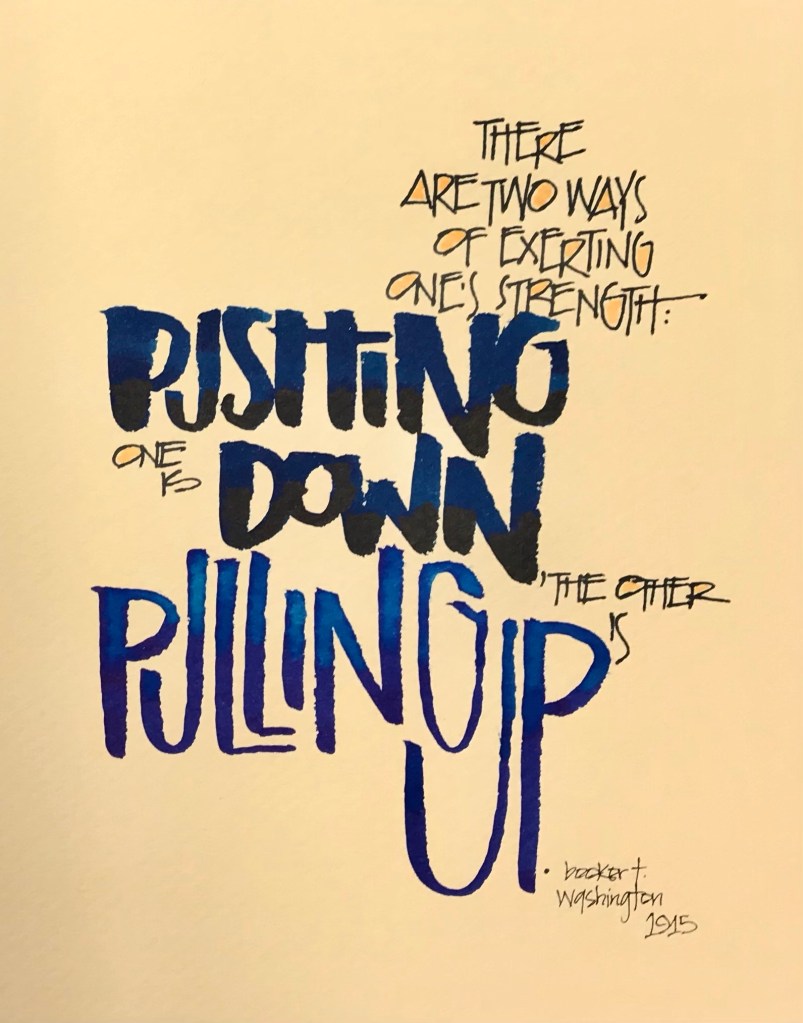 THERE
ARE TWO WAYS
OF EXERTING
ONE'S STRENGTH:
ONE
IS
PUSHING
DOWN,
THE OTHER
IS
PULLING
UP.
booker t.
Washington
1915